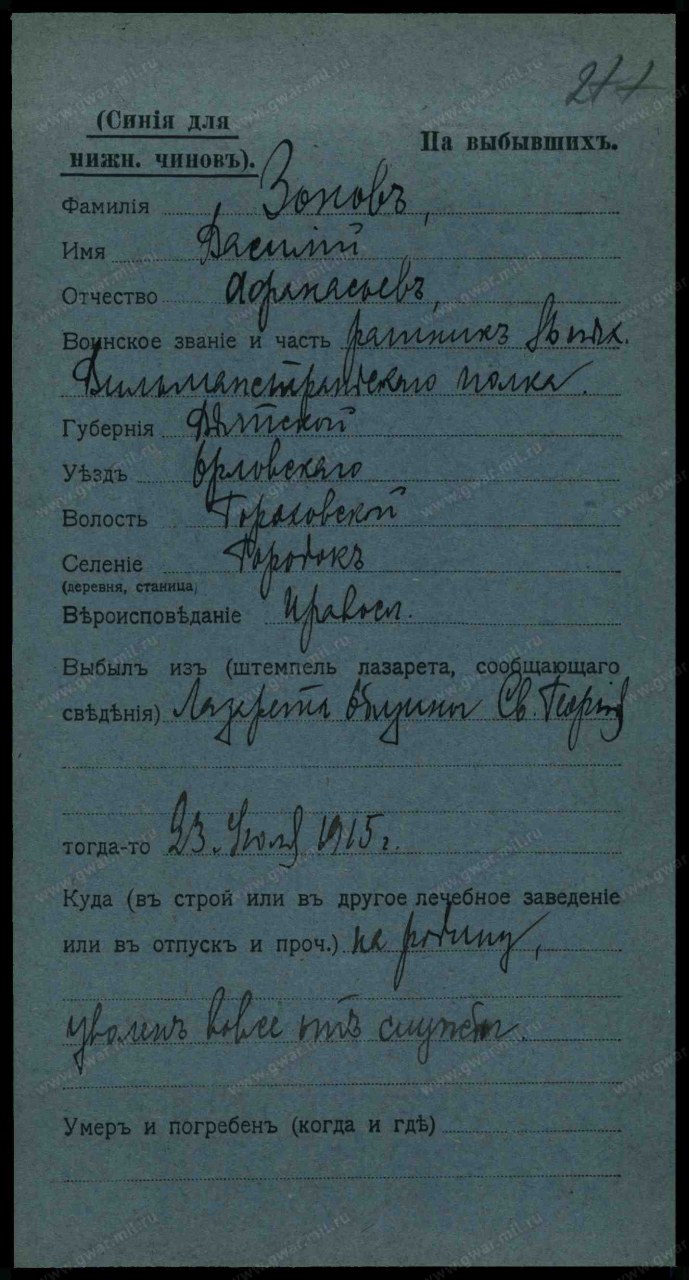 (Синія для
нижн. чиновъ).
На выбывшихъ.
Фамилія Зоновъ,
Имя Василій
Отчество Афанасьевъ,
Воинское званіе и часть ратникъ
Вильманстрандскаго полка.
Губернія Вятской
Уѣздъ Орловскаго
Волость Гороховской
Селеніе Городокъ
(деревня, станица)
Вѣроисповѣданіе Правосл.
Выбылъ изъ (штемпель лазарета, сообщающаго
свѣдѣнія) Лазарета общины Св. Георгія
тогда-то 23 Іюля 1915 г.
Куда (въ строй или въ другое лечебное заведеніе
или въ отпускъ и проч.) на родину,
уволенъ вовсе отъ службы.
Умеръ и погребенъ (когда и гдѣ)
www.gwar.mil.ru